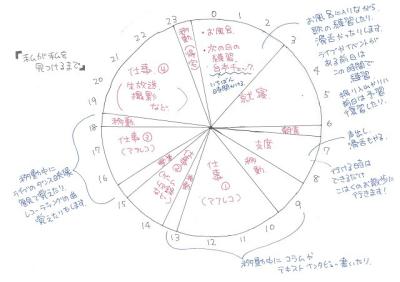 『私が私を
見つけるまで』
23
0
1
2
3
4
5
6
7
8
9
10
11
12
13
14
15
16
17
18
19
20
21
22
移動
帰宅
・お風呂
・次の日の
練習
台本チェック
いちばん
時間かける。
就寝
朝食
支度
移動
仕事
①
(アフレコ)
移動
仕事
②
移動
仕事③
(アフレコ)
移動
仕事④
(生放送
撮影
など)
お風呂に入りながら
歌の練習したり、
滑舌やったりします。
ライブやイベントが
ある前日は
この時間で
練習
前日は予習
復習したり。
声出し
滑舌もやる。
行ける時は
できるだけ
こはくのお散歩に
行きます!
移動中にコラムか
テキストインタビュー書いたり。
移動中に
ライブのダンス映像
見て覚えたり、
レコーディングの曲
覚えたりもします。